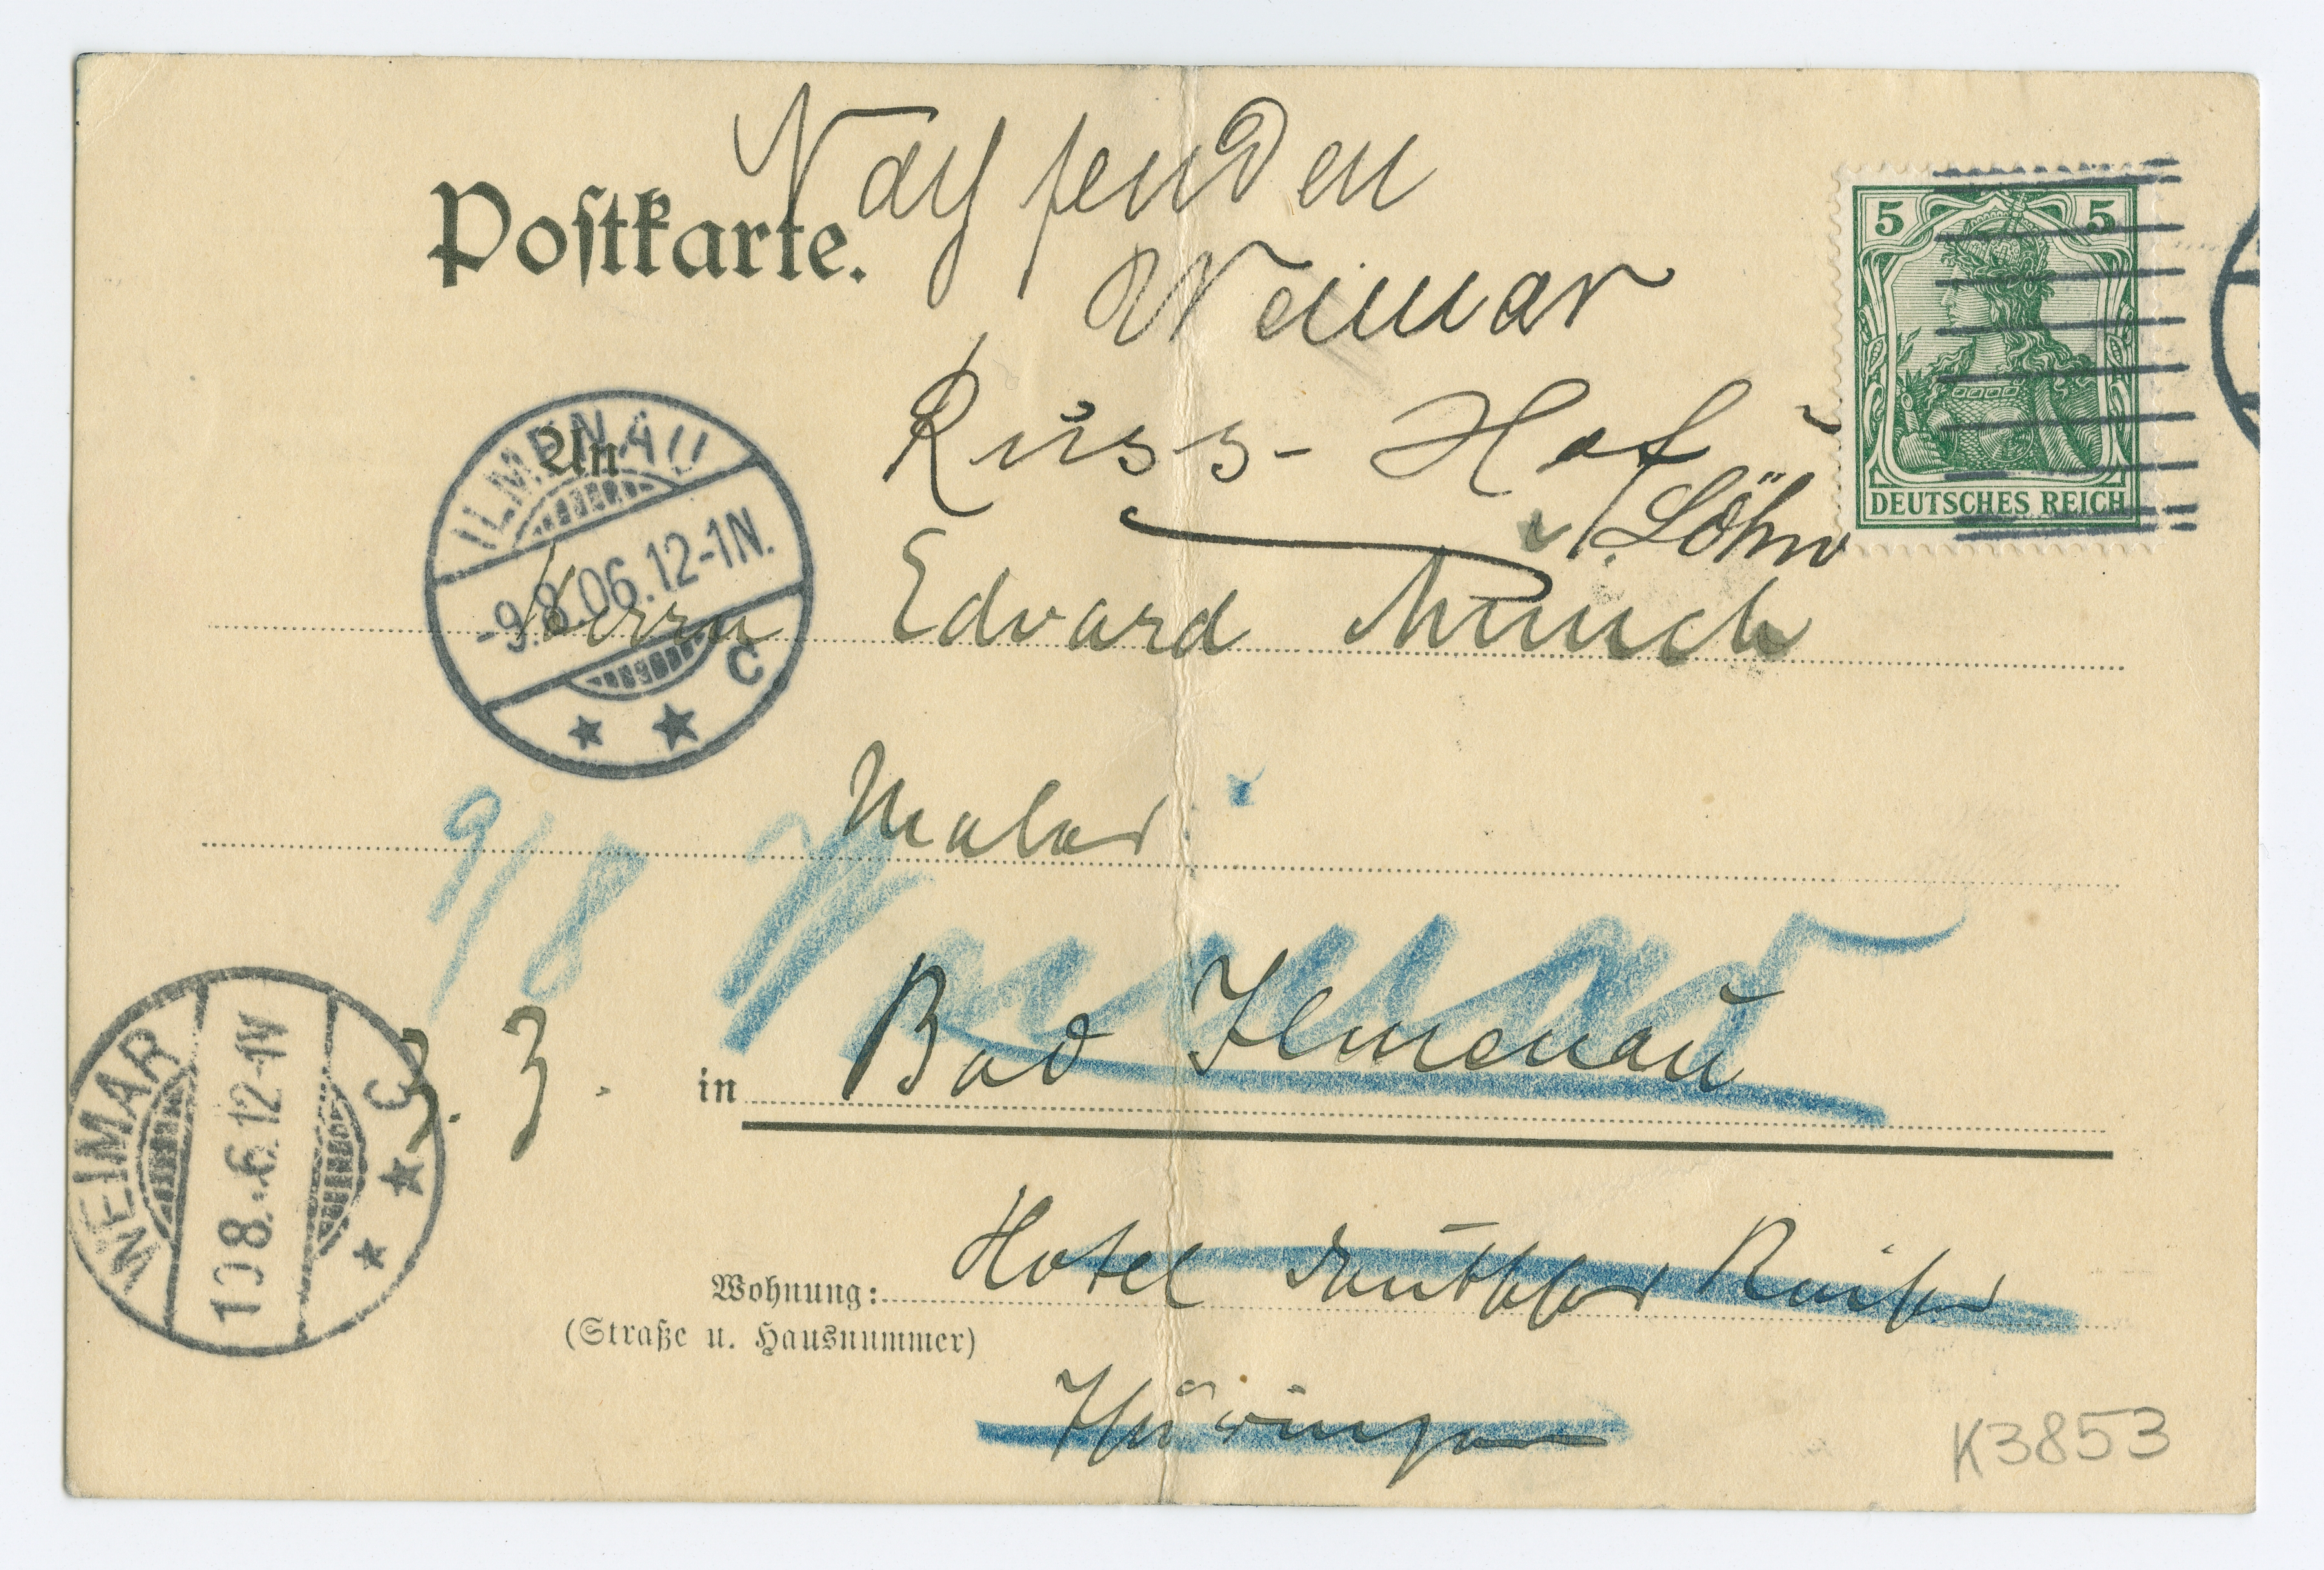 Nachsenden
Postkarte.
Weimar
Russ-Hof
Löhn
5 5
DEUTSCHES REICH
ILMENAU
-9.8.06.12-1N.
C
An
Herrn Edvard Munch
Maler
9/8 Weimar
WEIMAR
10 8.-6.12-1N
C
3. Z.
in Bad Ilmenau
Wohnung: Hotel deutscher Kaiser
(Straße u. Hausnummer)
Thüringen
K3853